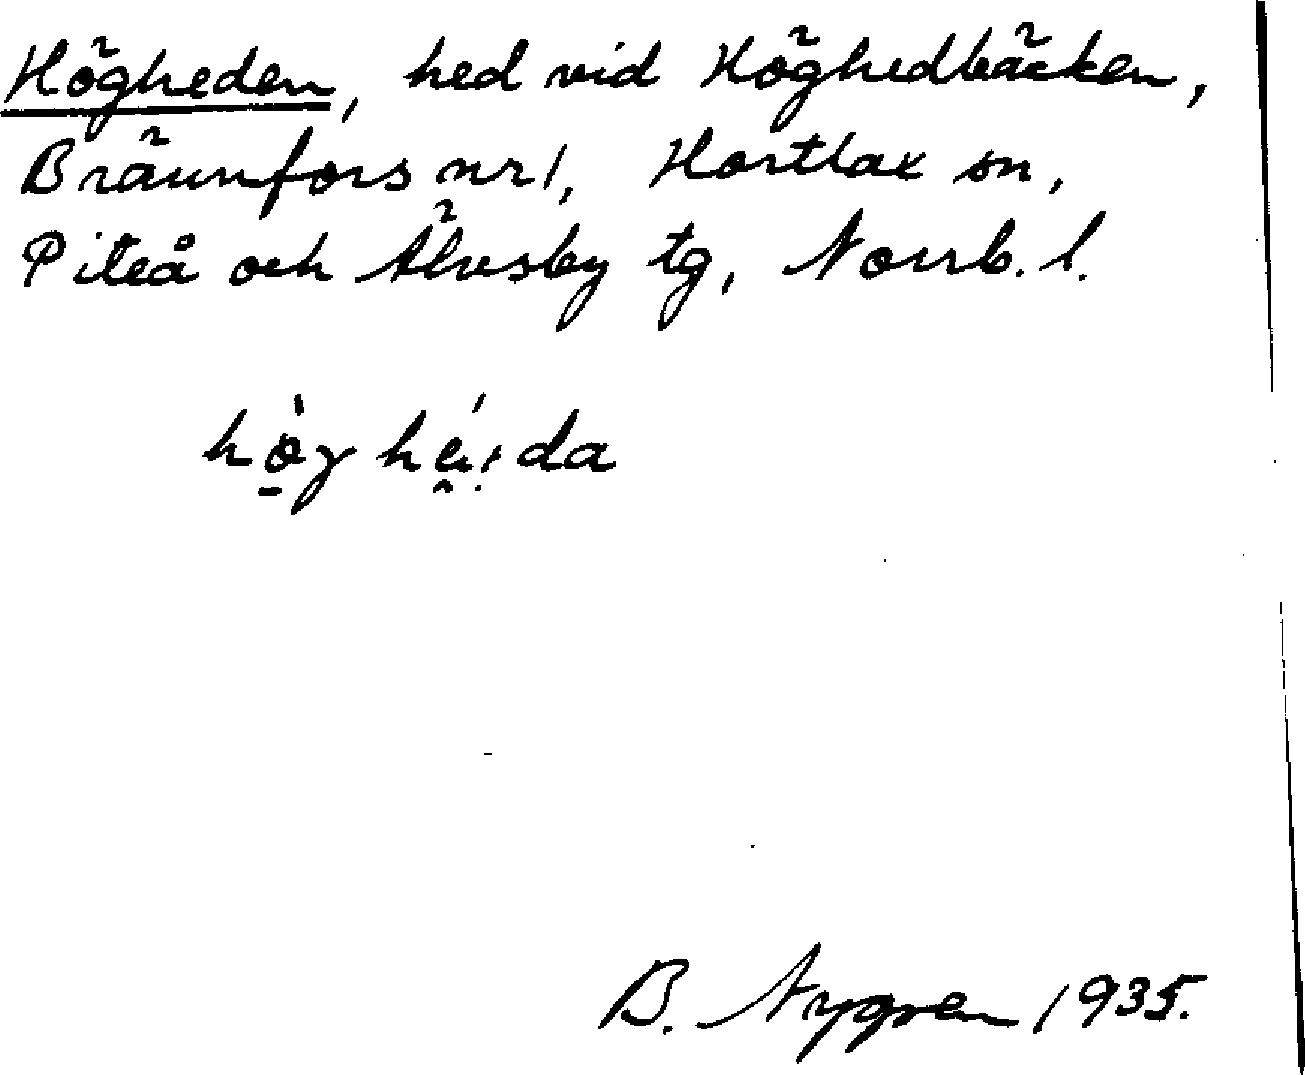 Högheden, hed vid Höghedbäcken,
Brännfors nr 1, Hortlax sn,
Piteå och Älvsby tg, Norrb. l.
B. Nygren 1935.